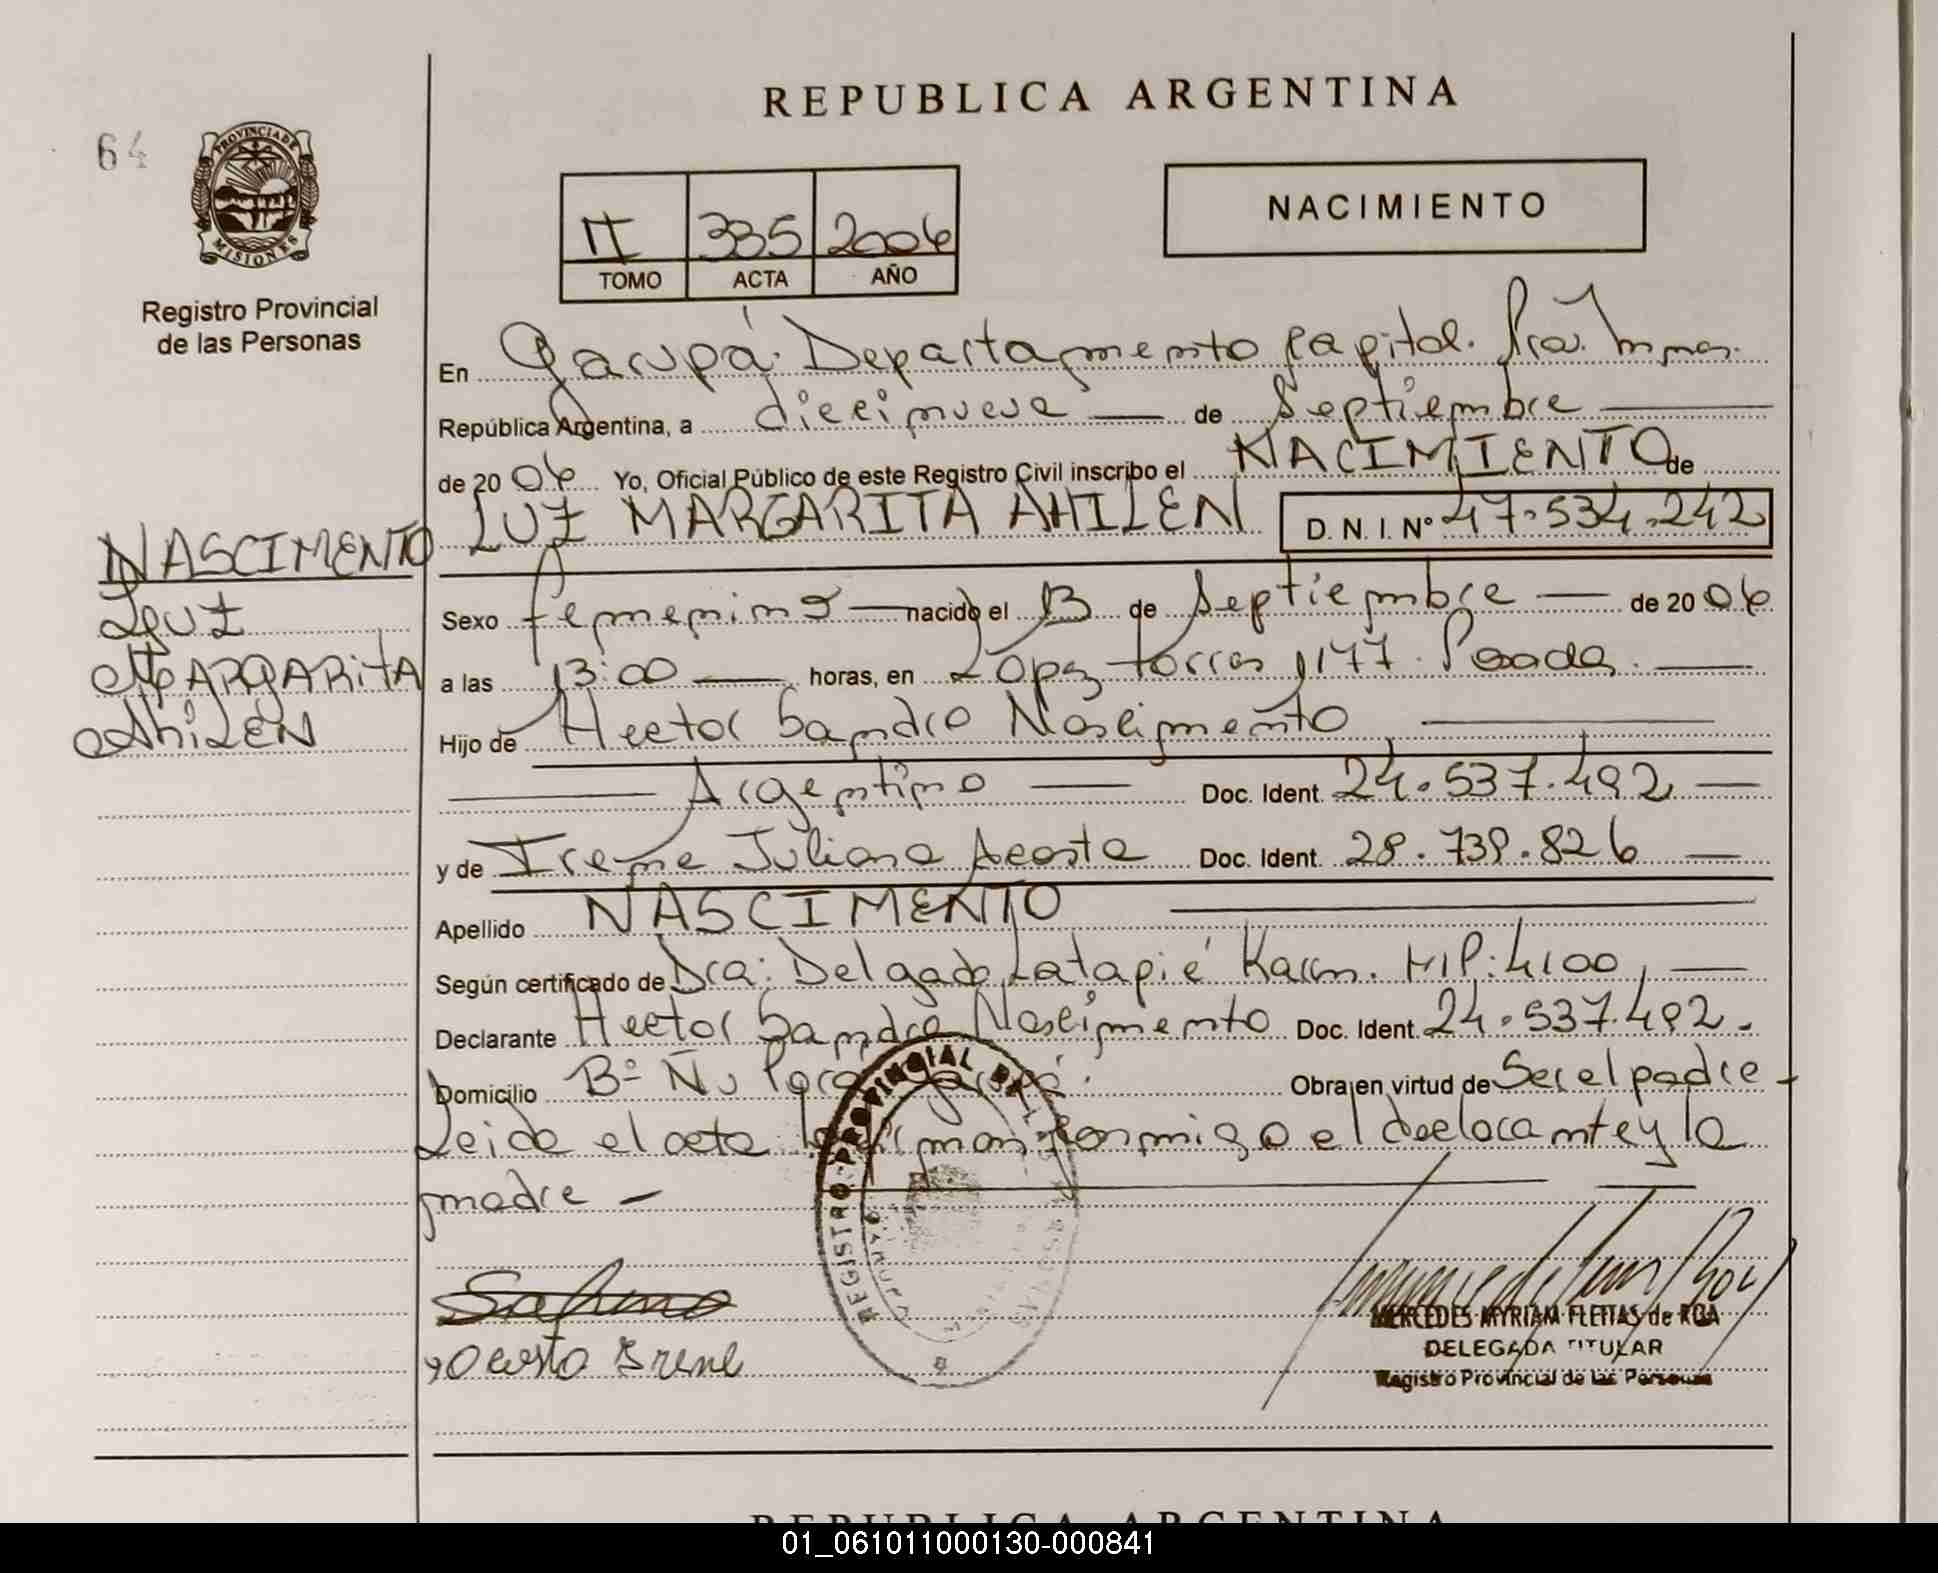 REPUBLICA ARGENTINA
64
PROVINCIA DE
MISIONES
Registro Provincial
de las Personas
II 335 2006
TOMO ACTA AÑO
NACIMIENTO
En Garupá. Departamento Capital.
República Argentina, a diecinueve — de Septiembre
de 20 06 Yo, Oficial Público de este Registro Civil inscribo el NACIMIENTO de
LUZ MARGARITA AHILEN D. N. I. Nº 47.534.242
NASCIMENTO
Luz
MARGARITA
AhiLEN
Sexo femenino — nacido el 13 de Septiembre — de 20 06
a las 13:00 — horas, en López Torres 1177. Posadas. —
Hijo de Hector Sandro Nascimento
— Argentino — Doc. Ident. 24.537.492 —
y de Irene Juliana Acosta Doc. Ident. 28.739.826 —
Apellido NASCIMENTO
Según certificado de Dra: Delgado Latapié Karen. M.P: 4100, —
Declarante Hector Sandro Nascimento Doc. Ident. 24.537.492.
Domicilio Bº Ñu Porá Garupá. Obra en virtud de Ser el padre -
Leida el acta la firman conmigo el declarante y la
madre —
REGISTRO PROVINCIAL DE
GARUPA
Acosta Irene
MERCEDES MYRIAM FLEITAS de ROA
DELEGADA TITULAR
Registro Provincial de las Personas
REPUBLICA ARGENTINA
01_061011000130-000841